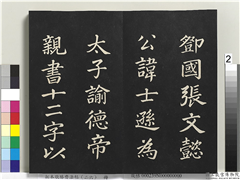 鄧國張文懿
公諱士遜為
太子諭德帝
親書十二字以
2